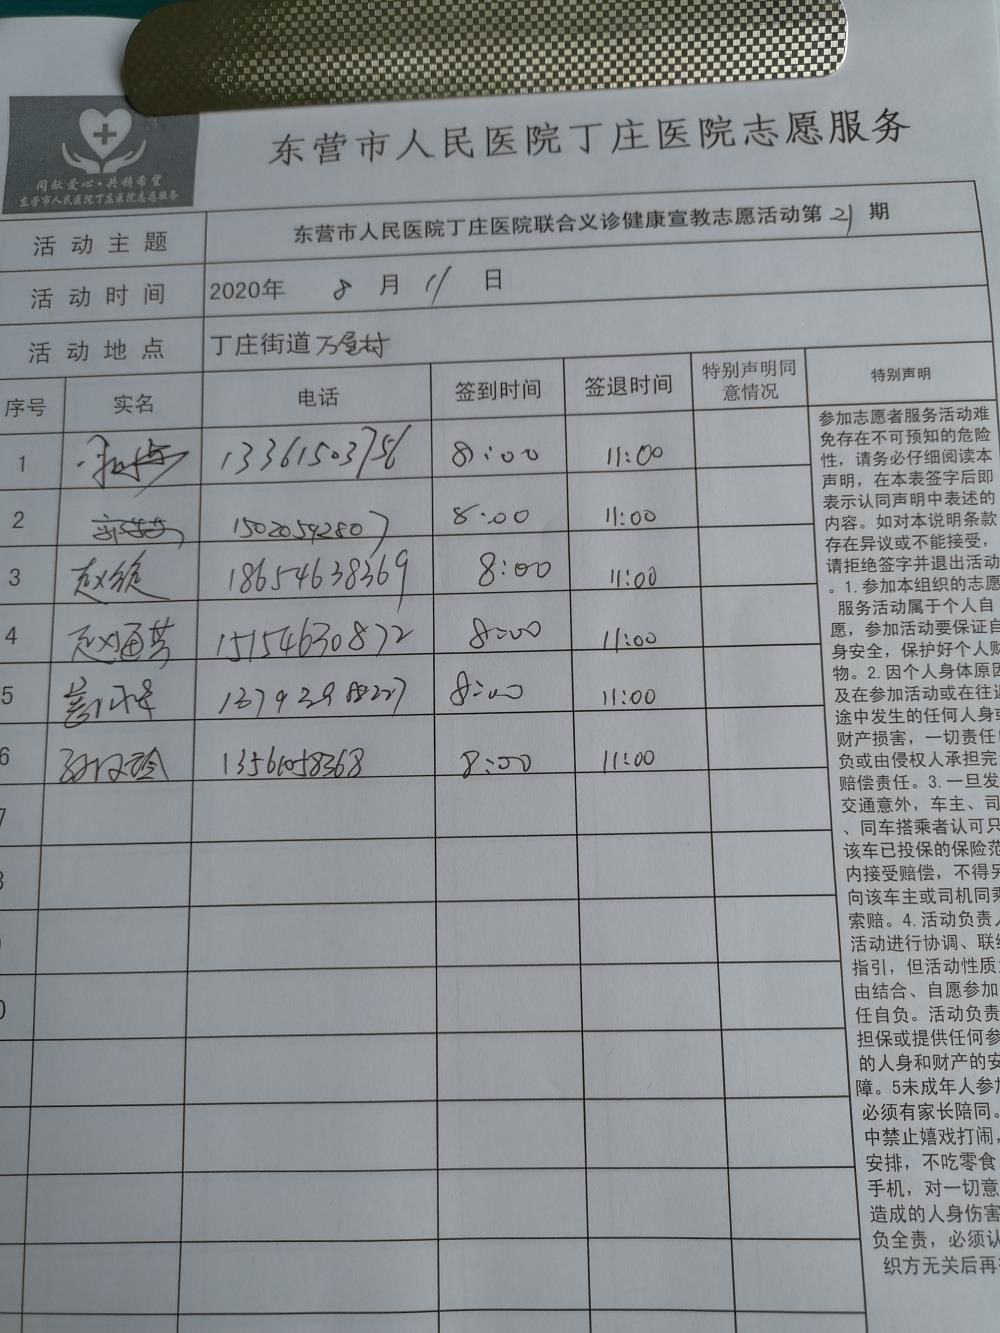 同献爱心·共铸希望
东营市人民医院丁庄医院志愿服务
东营市人民医院丁庄医院志愿服务
活动主题 东营市人民医院丁庄医院联合义诊健康宣教志愿活动第21期
活动时间 2020年 8 月 11 日
活动地点 丁庄街道万全村
序号 实名 电话 签到时间 签退时间 特别声明同意情况 特别声明
1 13361503756 8:00 11:00
2 15020592807 8:00 11:00
3 18654638369 8:00 11:00
4 赵通芳 15154630872 8:00 11:00
5 8:00 11:00
6 13561058368 8:00 11:00
7
参加志愿者服务活动难
免存在不可预知的危险
性，请务必仔细阅读本
声明，在本表签字后即
表示认同声明中表述的
内容。如对本说明条款
存在异议或不能接受，
请拒绝签字并退出活动
。1.参加本组织的志愿
服务活动属于个人自
愿，参加活动要保证自
身安全，保护好个人财
物。2.因个人身体原因
及在参加活动或在往返
途中发生的任何人身或
财产损害，一切责任
负或由侵权人承担完
赔偿责任。3.一旦发
交通意外，车主、司
、同车搭乘者认可只
该车已投保的保险范
内接受赔偿，不得另
向该车主或司机同乘
索赔。4.活动负责人
活动进行协调、联络
指引，但活动性质
由结合、自愿参加
任自负。活动负责
担保或提供任何参
的人身和财产的安
障。5未成年人参加
必须有家长陪同。
中禁止嬉戏打闹，
安排，不吃零食
手机，对一切意
造成的人身伤害
负全责，必须认
织方无关后再